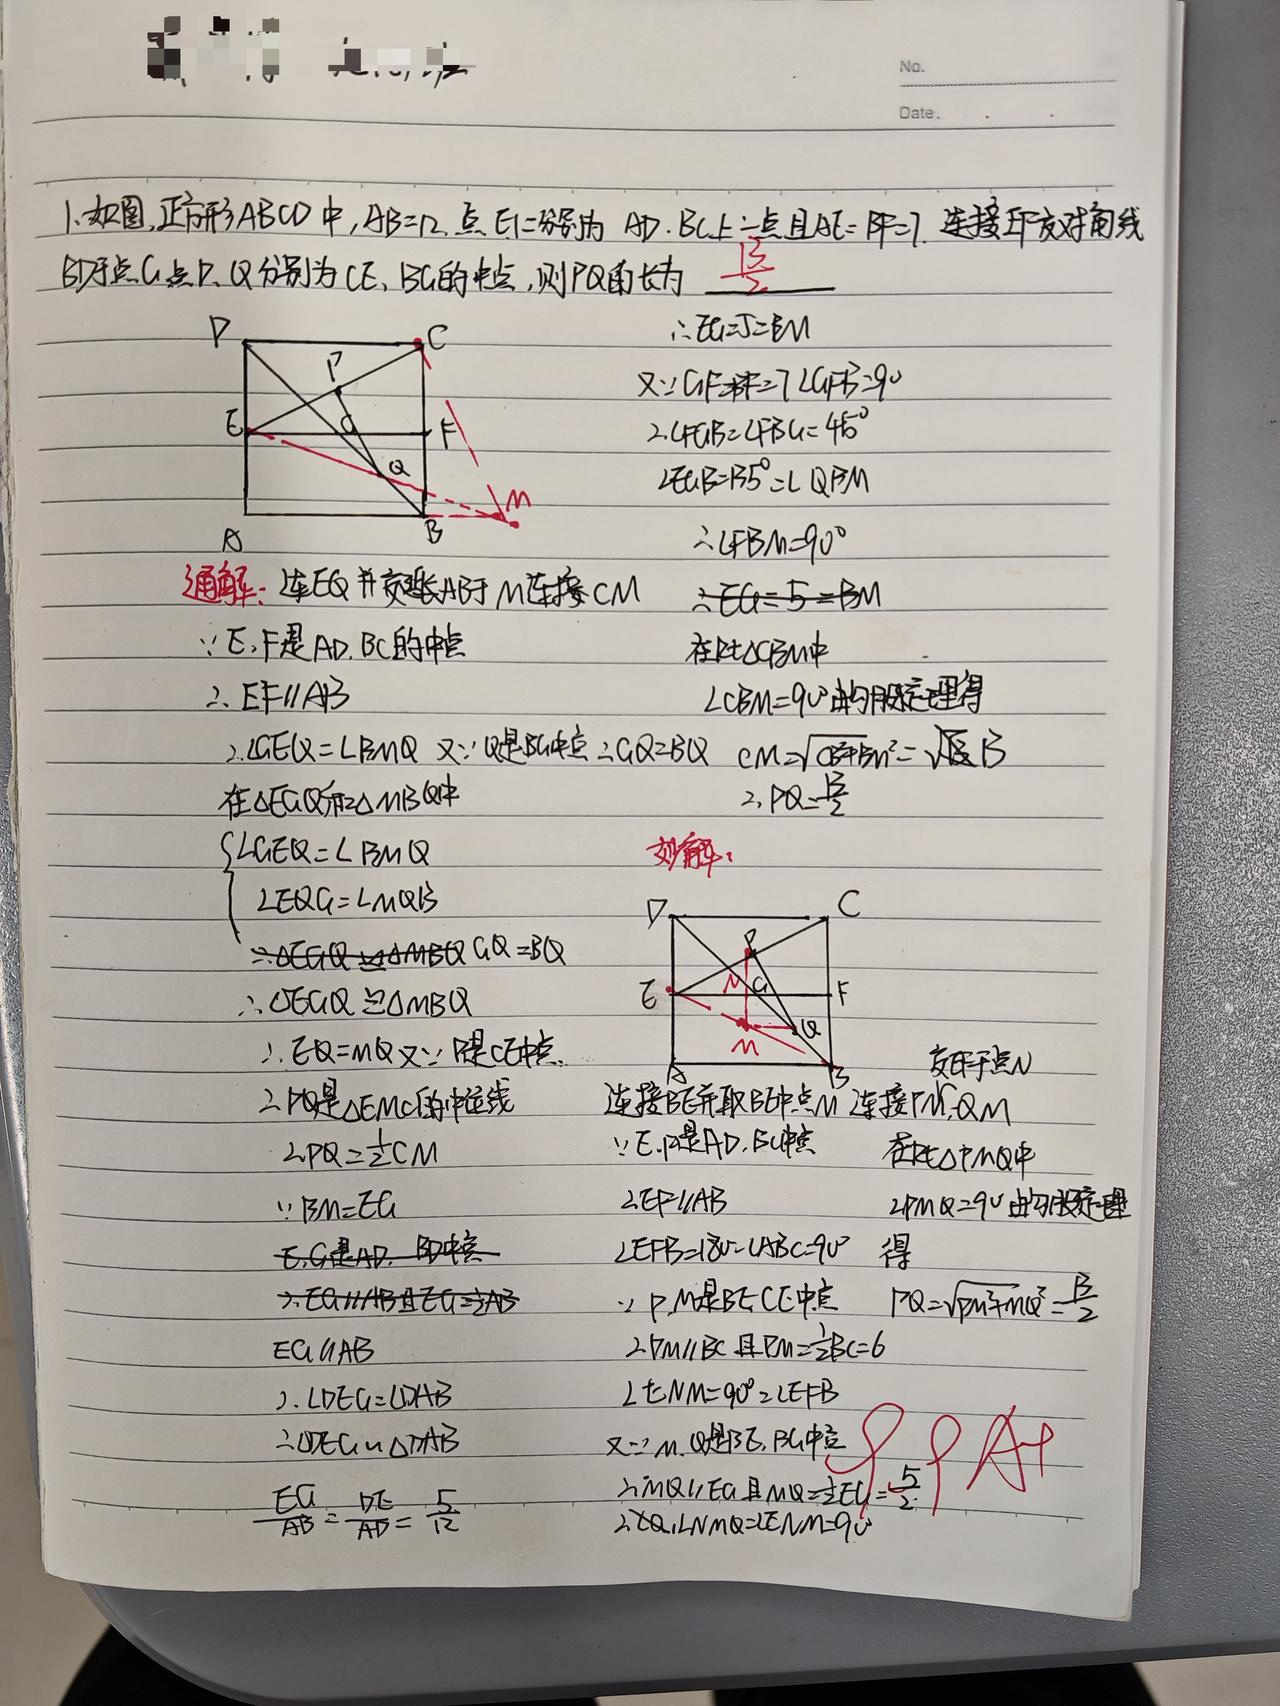 No.
Date.
1.如图,正方形ABCD中,AB=12,点E,F分别为 AD.BC上一点且AE=BF=7. 连接EF交对角线
BD于点G,点P、Q分别为CE、BG的中点,则PQ的长为 13/2
D
C
P
E
G
F
Q
M
A
B
通解: 连EQ并交延长AB于M连接CM
∵E,F是AD,BC的中点
∴EF∥AB
∴∠GEQ=∠BMQ 又∵Q是BG中点∴GQ=BQ
在△EGQ和△MBQ中
∠GEQ=∠BMQ
∠EQG=∠MQB
∴△EGQ≌△MBQ GQ=BQ
∴△EGQ≌△MBQ
∴EQ=MQ又∵P是CE中点.
∴PQ是△EMC的中位线
∴PQ=1/2CM
∵BM=EG
E,G是AD、BD中点
∴EG∥AB且EG=1/2AB
EG∥AB
∴∠DEG=∠DAB
∴△DEG∽△DAB
EG/AB=DE/AD=5/12
∴EG=5=BM
又∵GF=BF=7 ∠GFB=90
∴∠FGB=∠FBG=45°
∠EGB=135°=∠QBM
∴∠FBM=90°
∴EG=5=BM
在Rt△CBM中
∠CBM=90°由勾股定理得
CM=√CB²+BM²=13
∴PQ=13/2
妙解:
D
C
P
E
N
G
F
M
Q
A
B
交EF于点N
连接BE并取BE中点M 连接PM,QM
∵E,F是AD,BC中点
∴EF∥AB
∠EFB=180-∠ABC=90°
∵P,M是BE,CE中点
∴PM∥BC且PM=1/2BC=6
∠ENM=90°=∠EFB
又∵M,Q是BE,BG中点
∴MQ∥EG且MQ=1/2EG=5/2
∠NMQ=∠ENM=90°
在Rt△PMQ中
∠PMQ=90由勾股定理
得
PQ=√PM²+MQ²=13/2
A+